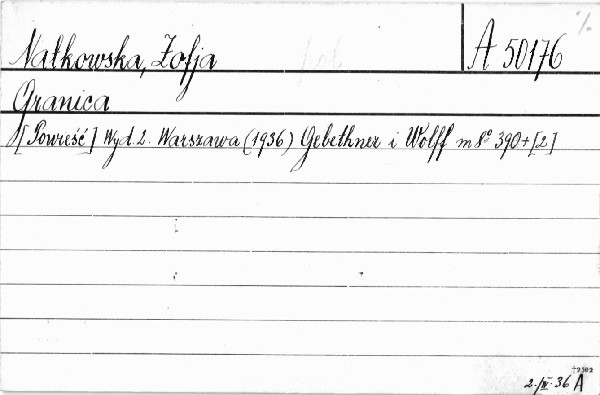 Nałkowska, Zofja
A 50176
Granica
[Powieść] Wyd. 2. Warszawa (1936) Gebethner i Wolff m 8° 390+[2]
2./IV. 36 A